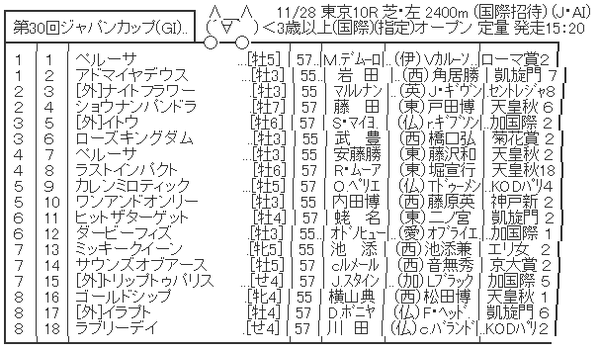 第30回ジャパンカップ(GⅠ)..
11/28 東京10R 芝・左 2400m (国際招待) (J・AI)
(´∀｀) <3歳以上(国際)(指定)オープン 定量 発走15:20
1 1 ペルーサ …[牡5] 57 M.デムーロ (伊) Vカルーソ ローマ賞2
1 2 アドマイヤデウス …[牡3] 55 岩 田 (西)角居勝 凱旋門 7
2 3 [外]ナイトフラワー …[牡3] 55 マルナン (英)J・ギヴン セントレジャ8
2 4 ショウナンパンドラ …[牡7] 57 藤 田 (東)戸田博 天皇秋 6
3 5 [外]イトウ …[牡6] 57 S・マイヨ (仏)r.ギブソン 加国際 2
3 6 ローズキングダム …[牡3] 55 武 豊 (西)橋口弘 菊花賞 2
4 7 ペルーサ …[牡3] 55 安藤勝 (東)藤沢和 天皇秋 2
4 8 ラストインパクト …[牡6] 57 R・ムーア (東)堀宣行 天皇秋18
5 9 カレンミロティック …[牡5] 57 O.ペリエ (仏)Tドゥーメン KODパリ4
5 10 ワンアンドオンリー …[牡3] 55 内田博 (西)藤原英 神戸新 2
6 11 ヒットザターゲット …[牡4] 57 蛯 名 (東)二ノ宮 凱旋門 2
6 12 ダービーフィズ …[牡3] 55 オドノヒュー (愛)オブライエ 加国際 1
7 13 ミッキークイーン …[牝5] 55 池 添 (西)池添兼 エリ女 2
7 14 サウンズオブアース …[牡5] 57 cルメール (西)音無秀 京大賞 2
7 15 [外]トリップトゥパリス …[せ4] 57 J.スタイン (加)Lブラック 加国際 5
8 16 ゴールドシップ …[牝4] 55 横山典 (西)松田博 天皇秋 1
8 17 [外]イラプト …[牡4] 57 D.ボニヤ (仏)F・ヘッド. 凱旋門 6
8 18 ラブリーデイ …[せ4] 57 川 田 (仏)c.バランド KODパリ2